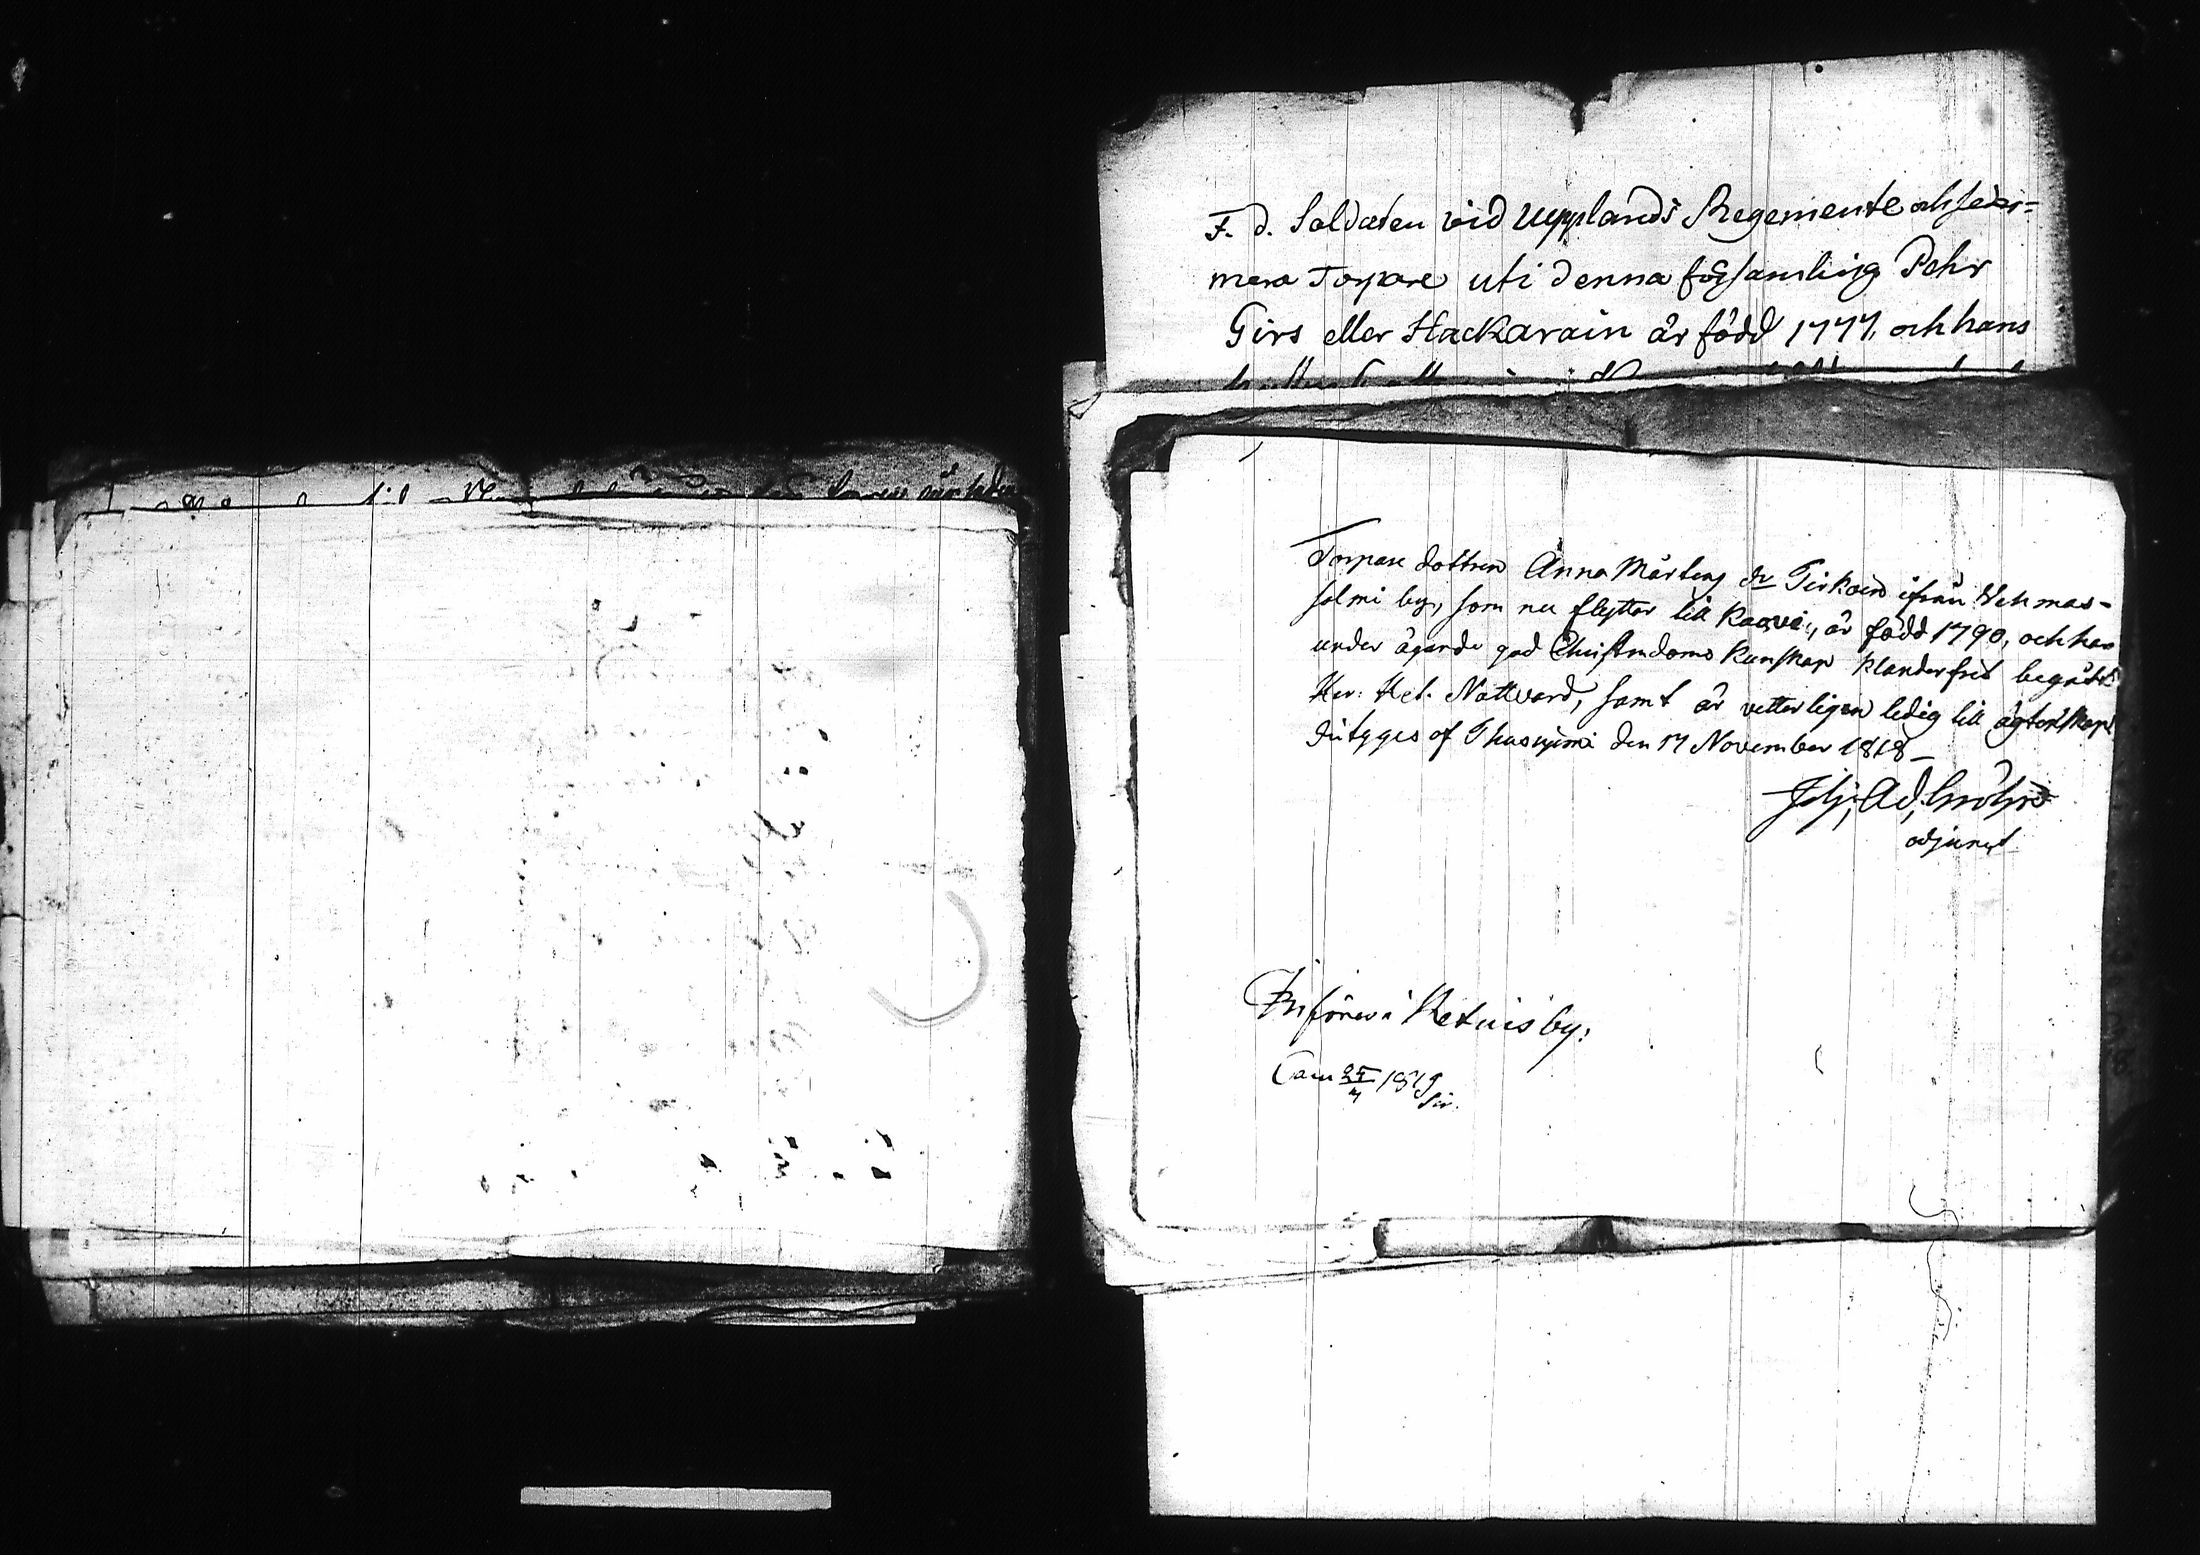 F. d. Soldaten vid Upplands Regemente och seder=
mera Torpare uti denna församling Pehr
Girs eller Hackarain är född 1777, och hans
Torpare dottren Anna Mårtens dr Tirkoin ifrån Vehmas-
salmi by, som nu flyttar till Kaavi, är född 1790, och har
under ägande god Christendoms Kunskap klanderfrit begått
Her: Hel. Nattvard, samt är vetterligen ledig till ägtenskap
Intyges af Thusnjemi den 17 November 1818 –
Joh: Ad:
adjunct
Införes i Retuis by:
1819